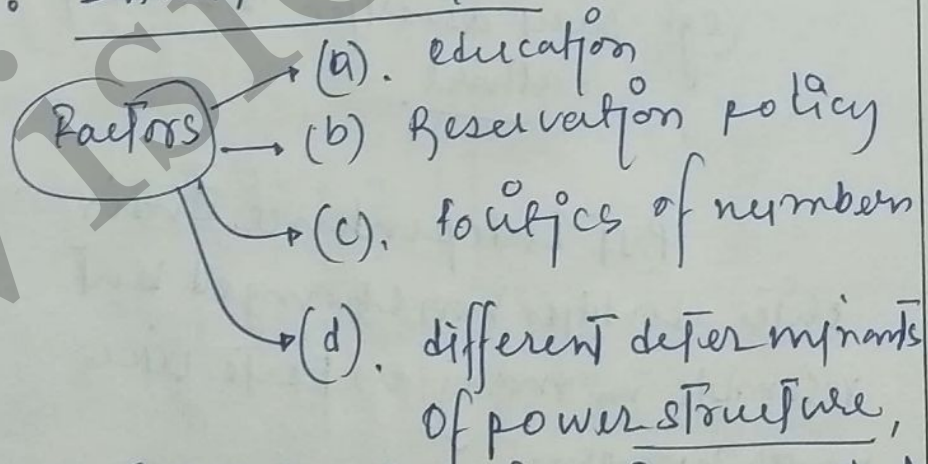 Factors
(a). education
(b) Reservation policy
(c). Politics of numbers
(d). different determinants
of power structure,